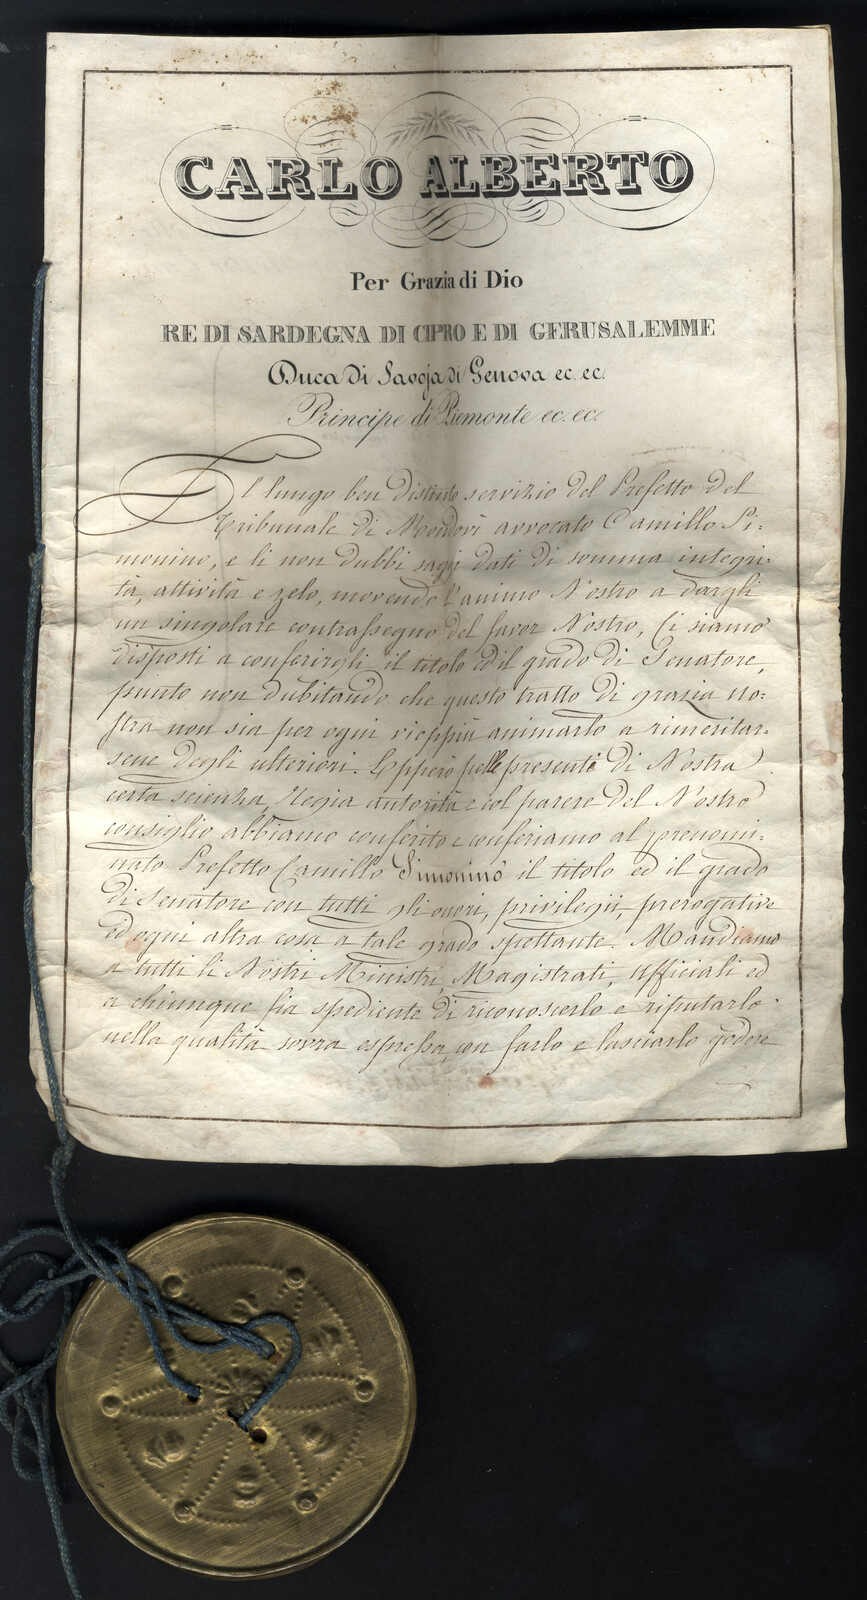 CARLO ALBERTO
Per Grazia di Dio
RE DI SARDEGNA DI CIPRO E DI GERUSALEMME
Duca di Savoja di Genova ec. ec.
Principe di Piemonte ec. ec.
Il lungo ben distinto servizio del Prefetto del
Tribunale di Mondovì avvocato Camillo Si=
monino, e li non dubbi saggi dati di somma integri=
tà, attività e zelo, movendo l'animo Nostro a dargli
un singolare contrassegno del favor Nostro, Ci siamo
disposti a conferirgli il titolo ed il grado di Senatore,
punto non dubitando che questo tratto di grazia no=
stra non sia per ogni vieppiù animarlo a rimeritar=
sene degli ulteriori. Epperò pelle presenti di Nostra
certa scienza, Regia autorità e col parere del Nostro
consiglio abbiamo conferito e conferiamo al prenomi=
nato Prefetto Camillo Simonino il titolo ed il grado
di Senatore con tutti gli onori, privilegii, prerogative
ed ogni altra cosa a tale grado spettante. Mandiamo
a tutti li Nostri Ministri, Magistrati, Ufficiali ed
a chiunque fia spediente di riconoscerlo e riputarlo
nella qualità sovra espressa, con farlo e lasciarlo godere